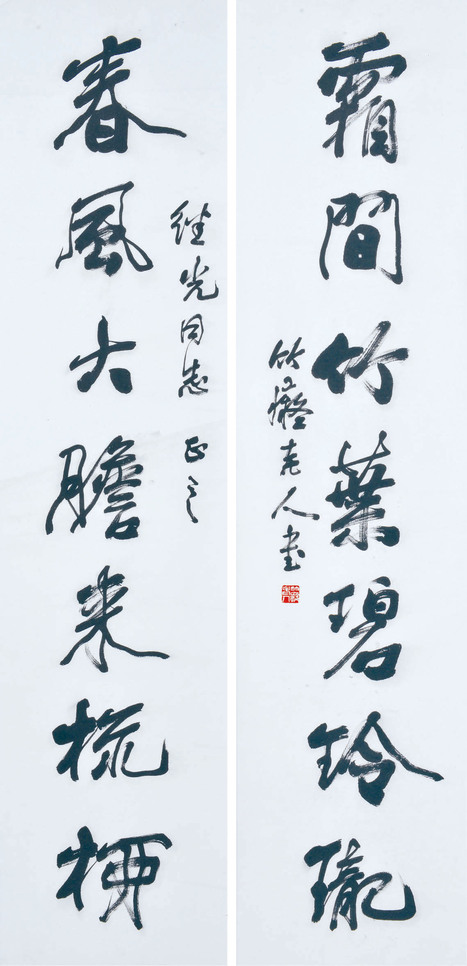 霜間竹葉碧玲瓏
竹癡老人書
继光同志正之
春風大膽来梳桺